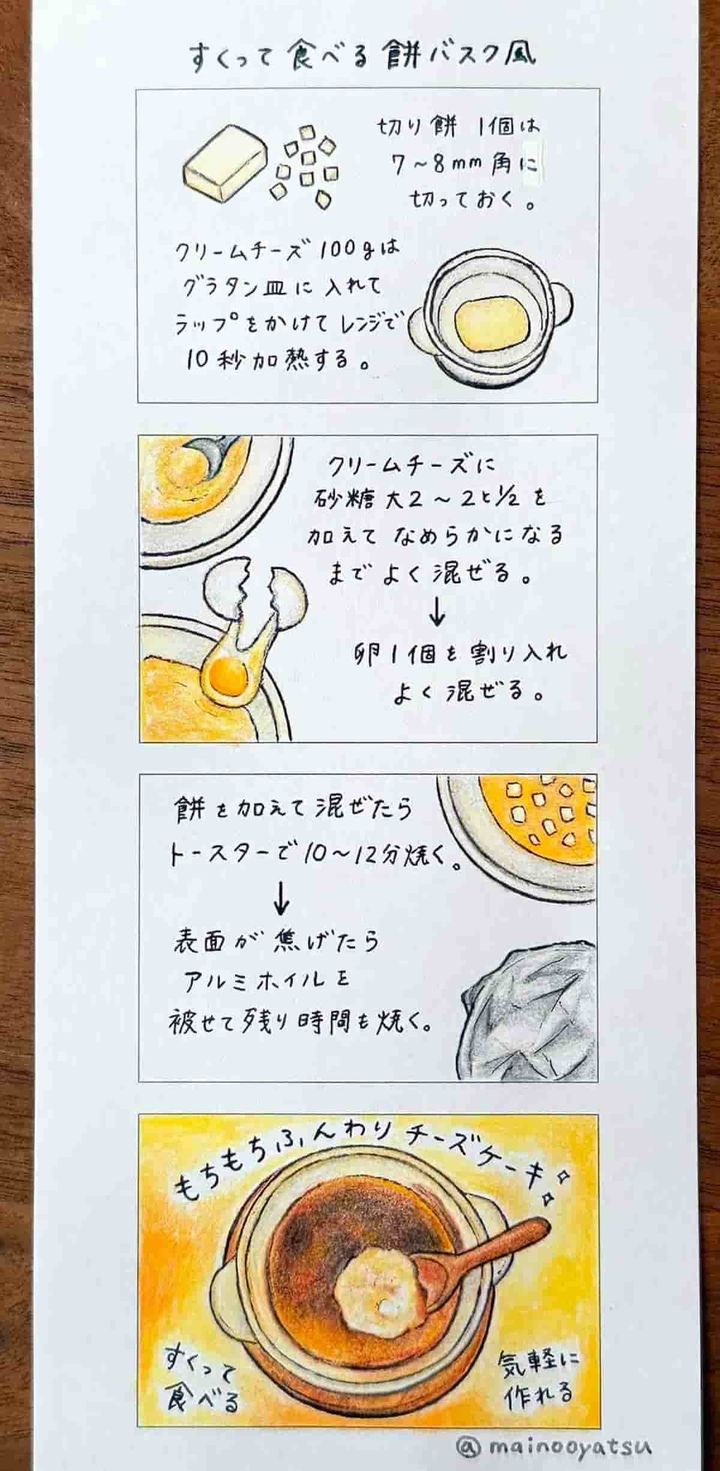 すくって食べる餅バスク風
切り餅 1個は
7～8mm角に
切っておく。
クリームチーズ100gは
グラタン皿に入れて
ラップをかけてレンジで
10秒加熱する。
クリームチーズに
砂糖大2～2と1/2を
加えてなめらかになる
までよく混ぜる。
↓
卵1個を割り入れ
よく混ぜる。
餅を加えて混ぜたら
トースターで10～12分焼く。
↓
表面が焦げたら
アルミホイルを
被せて残り時間も焼く。
もちもちふんわりチーズケーキ
すくって
食べる
気軽に
作れる
@mainooyatsu